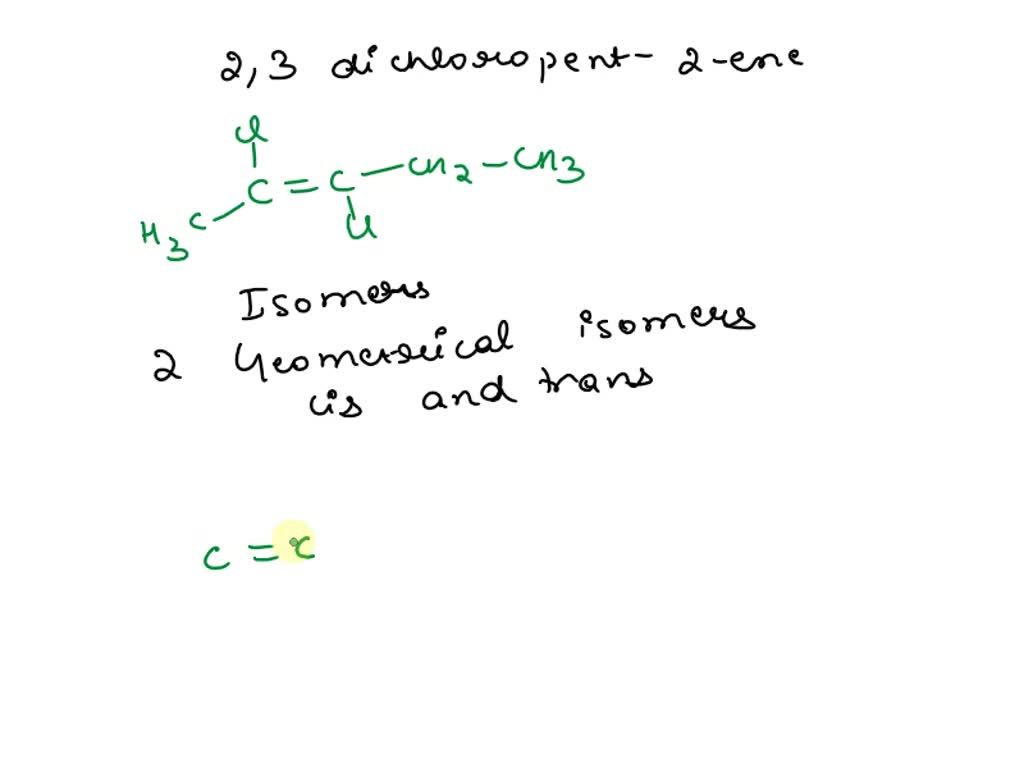 2,3 dichloropent- 2-ene
Cl
C = C - CH2 - CH3
H3C
Cl
Isomers
2 Geometrical isomers
cis and trans
C = C